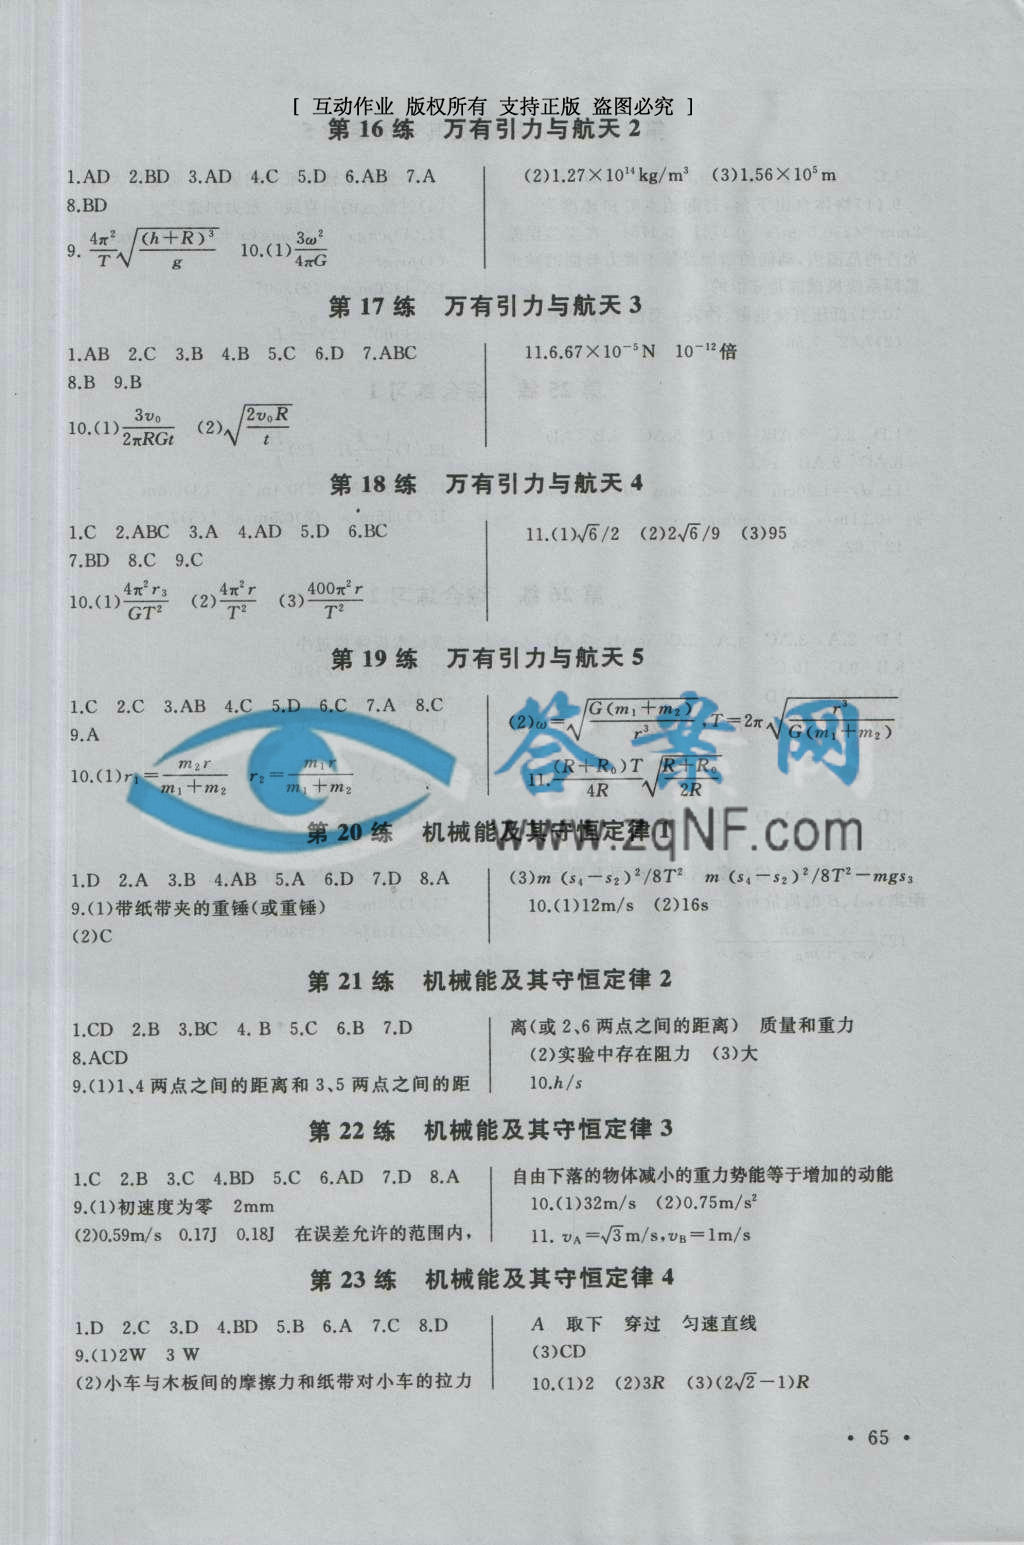 [ 互动作业 版权所有 支持正版 盗图必究 ]
第 16 练 万有引力与航天 2
1.AD 2.BD 3.AD 4.C 5.D 6.AB 7.A
8.BD
9. 4π²/T √((h+R)³/g) 10.(1) 3ω²/4πG
(2)1.27×10¹⁴kg/m³ (3)1.56×10⁵m
第 17 练 万有引力与航天 3
1.AB 2.C 3.B 4.B 5.C 6.D 7.ABC
8.B 9.B
10.(1) 3v₀/2πRGt (2)√(2v₀R/t)
11.6.67×10⁻⁵N 10⁻¹²倍
第 18 练 万有引力与航天 4
1.C 2.ABC 3.A 4.AD 5.D 6.BC
7.BD 8.C 9.C
10.(1) 4π²r₃/GT² (2) 4π²r/T² (3) 400π²r/T²
11.(1)√6/2 (2)2√6/9 (3)95
第 19 练 万有引力与航天 5
1.C 2.C 3.AB 4.C 5.D 6.C 7.A 8.C
9.A
10.(1)r₁= m₂r/(m₁+m₂) r₂= m₁r/(m₁+m₂)
(2)ω=√(G(m₁+m₂)/r³),T=2π√(r³/G(m₁+m₂))
11. (R+R₀)T/4R √((R+R₀)/2R)
答案网
www.zqNF.com
第 20 练 机械能及其守恒定律 1
1.D 2.A 3.B 4.AB 5.A 6.D 7.D 8.A
9.(1)带纸带夹的重锤(或重锤)
(2)C
(3)m (s₄−s₂)²/8T² m (s₄−s₂)²/8T²−mgs₃
10.(1)12m/s (2)16s
第 21 练 机械能及其守恒定律 2
1.CD 2.B 3.BC 4. B 5.C 6.B 7.D
8.ACD
9.(1)1、4 两点之间的距离和 3、5 两点之间的距
离(或 2、6 两点之间的距离) 质量和重力
(2)实验中存在阻力 (3)大
10.h/s
第 22 练 机械能及其守恒定律 3
1.C 2.B 3.C 4.BD 5.C 6.AD 7.D 8.A
9.(1)初速度为零 2mm
(2)0.59m/s 0.17J 0.18J 在误差允许的范围内,
自由下落的物体减小的重力势能等于增加的动能
10.(1)32m/s (2)0.75m/s²
11. v_A=√3m/s,v_B=1m/s
第 23 练 机械能及其守恒定律 4
1.D 2.C 3.D 4.BD 5.B 6.A 7.C 8.D
9.(1)2W 3 W
(2)小车与木板间的摩擦力和纸带对小车的拉力
A 取下 穿过 匀速直线
(3)CD
10.(1)2 (2)3R (3)(2√2−1)R
• 65 •